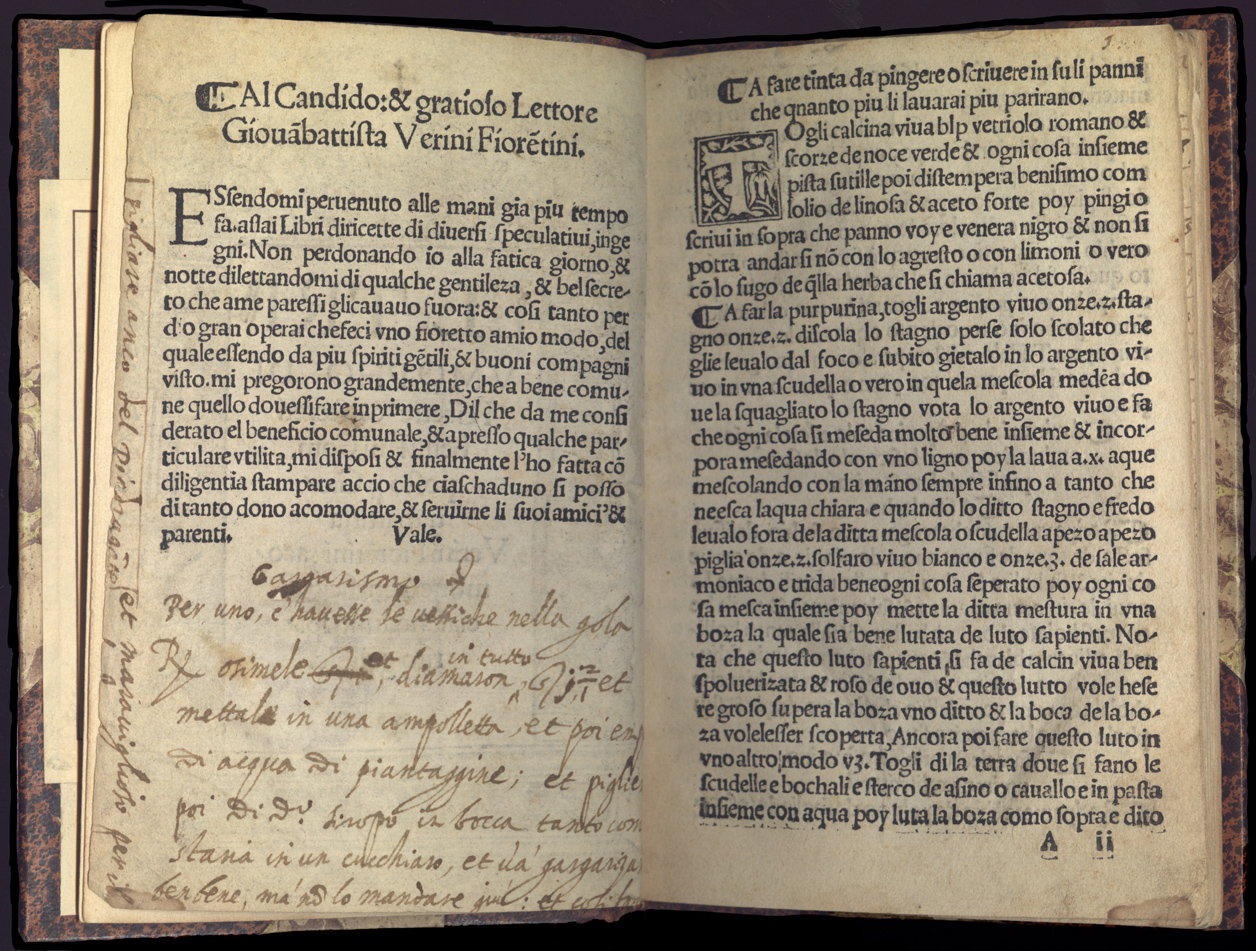 ¶ Al Candido: & gratioso Lettore
Giouãbattista Verini Fiorẽtini.
ESsendomi peruenuto alle mani gia piu tempo
fa. assai Libri diricette di diuersi speculatiui, inge
gni. Non perdonando io alla fatica giorno, &
notte dilettandomi di qualche gentileza, & bel secre-
to che ame paressi gli cauauo fuora: & cosi tanto per
dio gran operai chefeci vno fioretto amio modo, del
quale essendo da piu spiriti gẽtili, & buoni compagni
visto. mi pregorono grandemente, che a bene comu-
ne quello douessi fare inprimere, Dil che da me consi
derato el beneficio comunale, & apresso qualche par-
ticulare vtilita, mi disposi & finalmente l'ho fatta cõ
diligentia stampare accio che ciaschaduno si posso
di tanto dono acomodare, & seruirne li suoi amici &
parenti. Vale.
Gargarismo
Per uno, c'hauesse le uessiche nella gola
osimele et, diamaron, in tutto et
mettale in una ampolletta, et poi emp
di acqua di piantaggine; et piglie
poi di d.º siropo in bocca tanto com
staria in un cucchiaro, et uà gargariza
ben bene, mà nõ lo mandare giù: et cosi
pigliare anco del Diamaron et marauiglioso per il
3
¶ A fare tinta da pingere o scriuere in su li panni
che qnanto piu li lauarai piu parirano.
TOgli calcina viua blp vetriolo romano &
scorze de noce verde & ogni cosa insieme
pista sutille poi distempera benisimo com
lolio de linosa & aceto forte poy pingi o
scriui in sopra che panno voy e venera nigro & non si
potra andarsi nõ con lo agresto o con limoni o vero
cõ lo sugo de q̃lla herba che si chiama acetosa.
¶ A far la purpurina, togli argento viuo onze. z. sta-
gno onze. z. discola lo stagno perse solo scolato che
glie leualo dal foco e subito gietalo in lo argento vi-
uo in vna scudella o vero in quela mescola medẽa do
ue la squagliato lo stagno vota lo argento viuo e fa
che ogni cosa si meseda molto bene insieme & incor-
pora mesedando con vno ligno poy la laua a. x. aque
mescolando con la mano sempre insino a tanto che
neesca laqua chiara e quando lo ditto stagno e fredo
leualo fora de la ditta mescola o scudella a pezo a pezo
piglia onze. z. solfaro viuo bianco e onze. 3. de sale ar-
moniaco e trida beneogni cosa seperato poy ogni co
sa mesca insieme poy mette la ditta mestura in vna
boza la quale sia bene lutata de luto sapienti. No-
ta che questo luto sapienti, si fa de calcin viua ben
spoluerizata & roso de ouo & questo lutto vole hese
re groso su pera la boza vno ditto & la boca de la bo-
za volelesser scoperta, Ancora poi fare questo luto in
vno altro modo vz. Togli di la terra doue si fano le
scudelle e bochali e sterco de asino o cauallo e in pasta
insieme con aqua poy luta la boza como sopra e dito
A ii